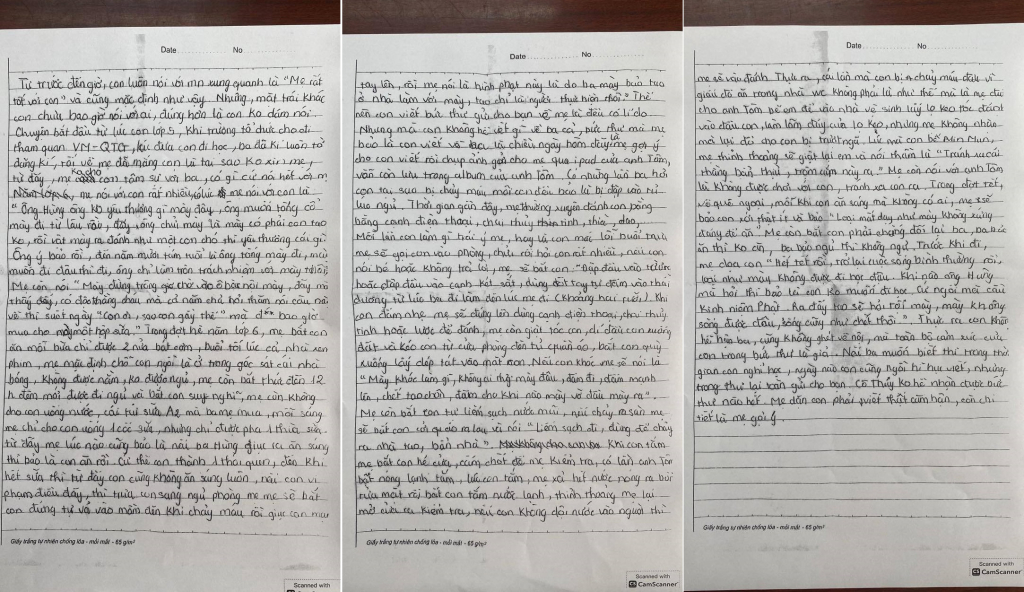 Date No
Từ trước đến giờ, con luôn nói với mn xung quanh là "Mẹ rất
tốt với con" và cũng mặc định như vậy. Nhưng, mặt trái khác
con chưa bao giờ nói với ai, đúng hơn là con ko dám nói.
Chuyện bắt đầu từ lúc con lớp 5, khi trường tổ chức cho đi
tham quan VM-QTG, lúc đưa con đi học, ba đã kí luôn tờ
đăng kí, rồi về mẹ đã mắng con là tại sao ko xin mẹ,
từ đấy, mẹ ko cho con tâm sự với ba, có gì cứ nói hết với m
Năm lớp 6, mẹ nói với con rất nhiều, mẹ nói với con là
"Ông Hùng ông ko yêu thương gì mày đâu, ông muốn tống cổ
mày đi từ lâu rồi, ông chửi mày là mày có phải con tao
ko, rồi vứt mày ra đánh như một con chó thì yêu thương cái gì.
Ông ý bảo rồi, đến năm mười tám tuổi là ông tống mày đi, mày
muốn đi đâu thì đi, ông chỉ làm tròn trách nhiệm với mày
Mẹ còn nói "Mày đừng trông chờ vào ông bà nội mày, đấy mà
thấy đấy, có đợt tháng đau mà cả năm chả hỏi thăm nổi câu nào
về thì suốt ngày "Con ơi, sao con gầy thế" mà bao giờ
mua cho một hộp sữa." Trong đợt hè năm lớp 6, mẹ bắt con
ăn mỗi bữa chỉ được 2 nửa bát cơm, buổi tối lúc cả nhà xem
phim, mẹ mặc định chỗ con ngồi là ở trong góc sát cái nhà
bóng, không được nằm, ko được ngủ, mẹ còn bắt thức đến 12
h đêm mới được đi ngủ và bắt con suy nghĩ, mẹ còn không
cho con uống nước, cái túi sữa mà ba mẹ mua, mỗi sáng
mẹ chỉ cho con uống 1 cốc sữa, nhưng chỉ được pha 1 thìa sữa.
từ đấy mẹ lúc nào cũng bảo là nói ba Hùng giục ra ăn sáng
thì bảo là con ăn rồi. Cứ thế con thành 1 thói quen, đến khi
hết sữa thì từ đấy con cũng không ăn sáng luôn, nếu con vi
phạm điều đấy, thì trưa con sang ngủ phòng mẹ mẹ sẽ bắt
con đứng tự vả vào mồm đến khi chảy máu rồi giục con
Giấy trắng tự nhiên chống lóa - mỏi mắt - 65 g/m²
Scanned with
CamScanner
Date No
tay lên, rồi mẹ nói là hình phạt này là do ba mày bảo tao
ở nhà làm với mày, tao chỉ là người thực hiện thôi." Thế
nên con viết bức thư gửi cho bạn về mẹ là đều có lí do.
Nhưng mà con không hề viết gì về ba cả, bức thư mà mẹ
bảo là con viết về ba là chiều ngày hôm mẹ gợi ý
cho con viết rồi chụp ảnh gửi cho mẹ qua ipad của anh Tôm,
vẫn còn lưu trong album của anh Tôm. Có những lần ba hỏi
con tai sao bị chảy máu mồi con đều bảo là bị đập vào tủ
lúc ngủ. Thời gian gần đây, mẹ thường xuyên đánh con bằng
bằng cạnh điện thoại, chai thủy tinh, thìa, dao,
Mỗi lần con làm gì trái ý mẹ, hay là con mới lỗi buổi trưa
mẹ sẽ gọi con vào phòng, chửi rồi hỏi con rất nhiều, nếu con
nói bé hoặc không trả lời, mẹ sẽ bắt con "Đập đầu vào tường
hoặc đập đầu vào cạnh két sắt, dùng đốt tay tự đấm vào thái
dương từ lúc ba đi làm đến lúc mẹ đi (khoảng hai tiếng). Khi
con đấm nhẹ, mẹ sẽ dùng lên dùng cạnh điện thoại, chai thủy
tinh hoặc lược để đánh, mẹ còn giật tóc con, dí đầu con xuống
đất và kéo con từ cửa phòng đến tủ quần áo, bắt con quỳ
xuống lấy dép tát vào mặt con. Nếu con khóc mẹ sẽ nói là
"Mày khóc làm gì, không ai thấy mày đâu, đấm đi, đấm mạnh
lên, chết tao chôn, đấm cho khi nào mày vỡ đầu mày ra".
Mẹ còn bắt con tự liếm sạch nước mũi, nếu chảy ra sàn mẹ
sẽ bắt con cởi quần áo ra lau và nói "Liếm sạch đi, đừng để chảy
ra nhà tao, bẩn nhà". Khi con tắm
mẹ bắt con hé cửa, cấm chốt để mẹ kiểm tra, có lần anh Tôm
bật nóng lạnh tắm, lúc con tắm, mẹ xả hết nước nóng ra bồn
rửa mặt rồi bắt con tắm nước lạnh, thỉnh thoảng mẹ lại
mở cửa ra kiểm tra, nếu con không dội nước vào người thì
Giấy trắng tự nhiên chống lóa - mỏi mắt - 65 g/m²
Scanned with
CamScanner
Date No
mẹ sẽ vào đánh. Thực ra, cái lần mà con bị chảy máu đầu vì
giấu đồ ăn trong nhà wc không phải là như thế mà là mẹ đưa
cho anh Tôm bế em để vào nhà vệ sinh lấy lọ keo tóc đánh
vào đầu con, làm lõm đáy của lọ keo, nhưng mẹ không nhận
mà lại đổ cho con bị trượt ngã. Lúc mà con bế Min Min,
mẹ thỉnh thoảng sẽ giật lại em và nói thầm là "Tránh xa cái
thằng bẩn thỉu, trộm cắp này ra". Mẹ còn nói với anh Tôm
là không được chơi với con, tránh xa con ra. Trong đợt tết,
về quê ngoại, mỗi khi con ăn sáng mà không có ai, mẹ sẽ
bảo con, và bảo "Loại mất dạy như mày không xứng
đáng để ăn". Mẹ còn bắt con phải chống đối lại ba, ba bảo
ăn thì ko ăn, ba bảo ngủ thì không ngủ. Trước khi đi,
mẹ dọa con "Hết tết rồi, trở lại cuộc sống bình thường rồi,
loại như mày không được đi học đâu. Khi nào ông Hùng
mà hỏi thì bảo là con ko muốn đi học. Cứ ngồi mà cầu
kinh niệm Phật. Ra đấy tao sẽ hỏi tội mày, mày không
sống được đâu, sống cũng như chết thôi." Thực ra con không
hề hận ba, cũng không ghét về nội, mà toàn bộ cảm xúc của
con trong bức thư là giả. Nếu ba muốn biết thì trong thời
gian con nghỉ học, ngày nào con cũng ngồi hí húi viết, nhưng
trong thư lại toàn gửi cho bạn. Cô Thủy ko hề nhận được bức
thư nào hết. Mẹ dặn con phải viết thật cẩn thận, còn chi
tiết là mẹ gợi ý.
Giấy trắng tự nhiên chống lóa - mỏi mắt - 65 g/m²
Scanned with
CamScanner